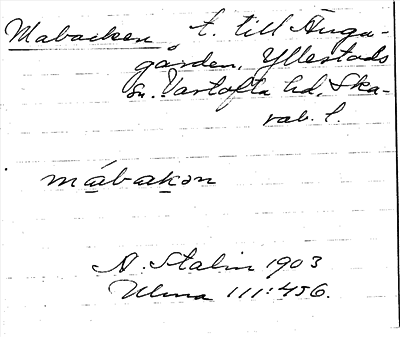 Mabacken t. till Ånga-
gården, Yllestads
sn. Vartofta hd, Ska-
rab. l.
mábakən
A. Stalin 1903
Ulma 111:456.